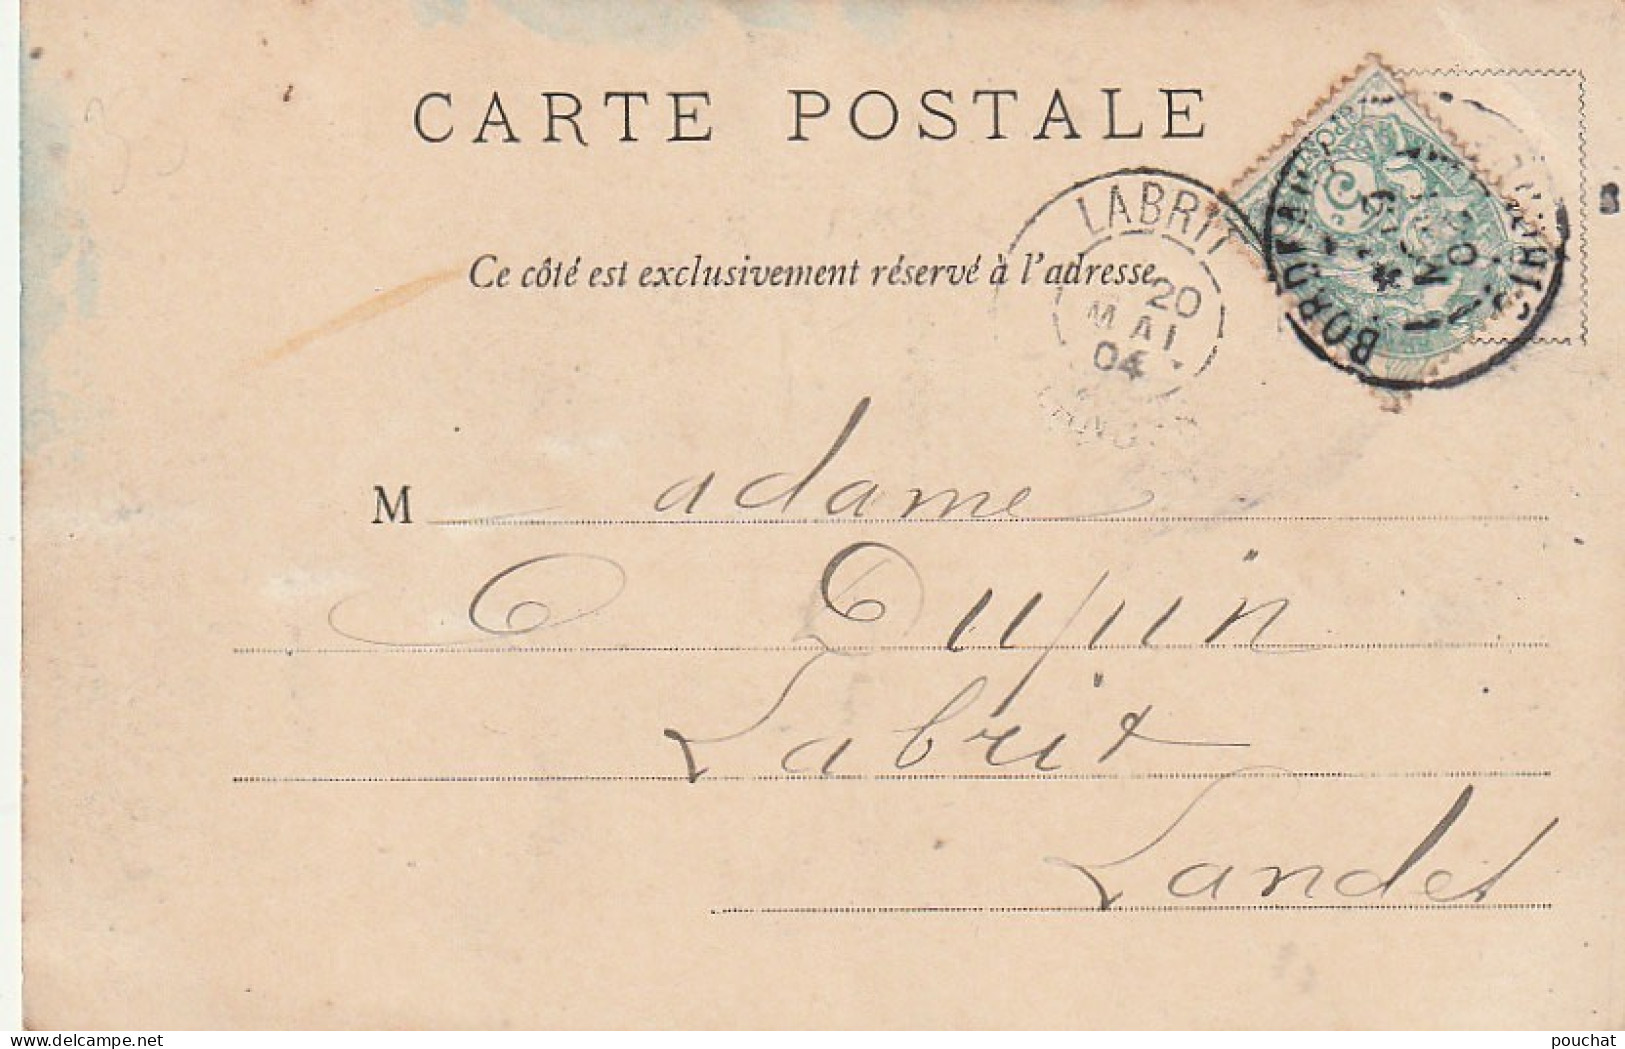 CARTE POSTALE
Ce côté est exclusivement réservé à l'adresse
LABRIT
20
MAI
04
BORDEAUX
5
POSTES
Madame
Dupin
Labrit
Landes
delcampe.net
pouchat